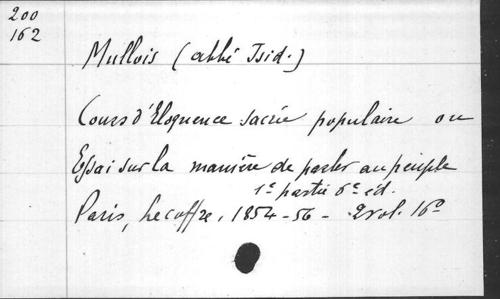 200
162
Mullois (abbé Isid.)
Cours d'Eloquence sacrée populaire ou
Essai sur la manière de parler au peuple
1e partie 6e éd.
Paris, Lecoffre, 1854-56 - 2 vol. 16°